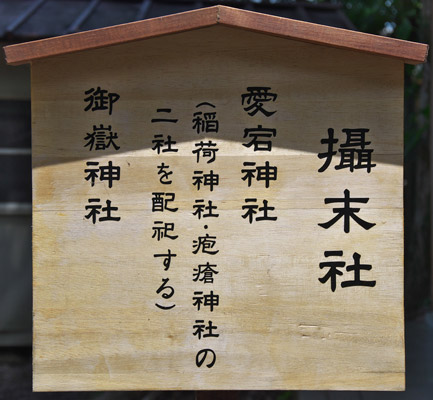 攝末社
愛宕神社
(稲荷神社・疱瘡神社の
二社を配祀する)
御嶽神社